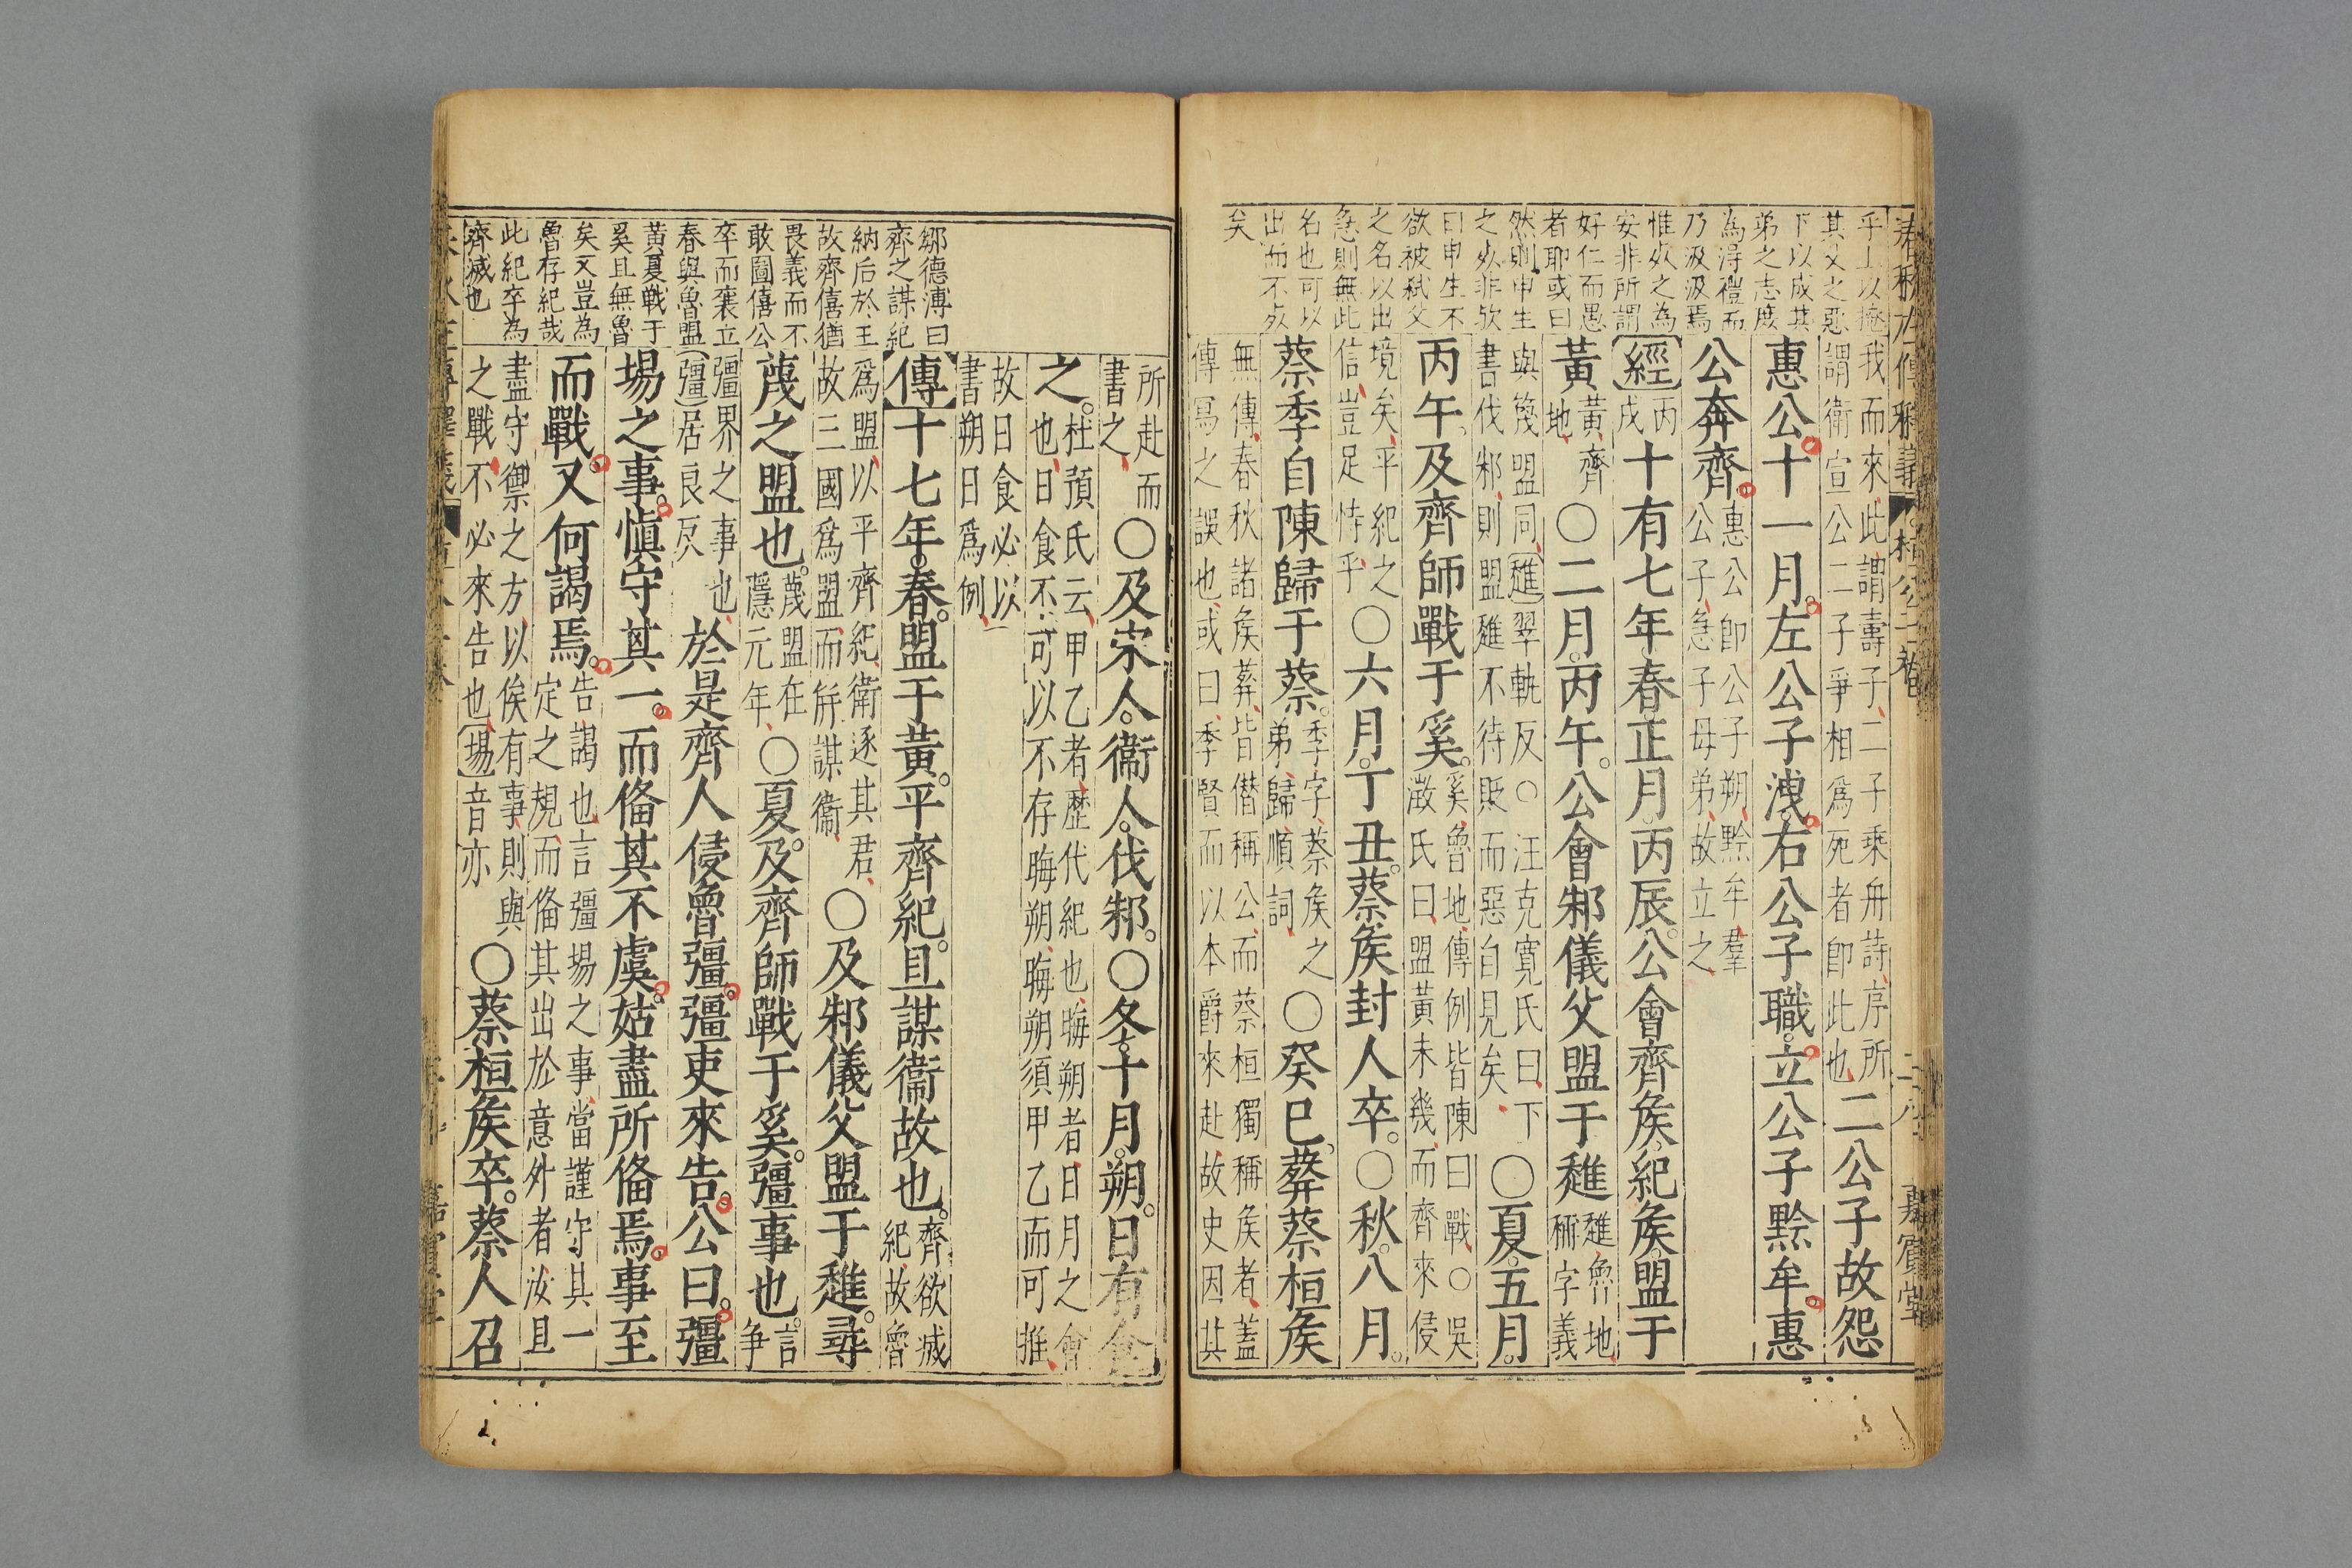 乎上以掩
其父之惡
下以成其
弟之志庶
為得禮而
乃汲汲焉
惟死之為
安非所謂
好仁而愚
者耶或曰
然則申生
之死非欤
曰申生不
欲被弒父
之名以出
急則無此
名也可以
出而不死
矣
我而來此謂壽子二子乘舟詩序所
謂衛宣公二子爭相爲死者即此也
二公子故怨
惠公十一月左公子洩右公子職立公子黔牟惠
公奔齊
惠公即公子朔黔牟羣
公子急子母弟故立之
經
丙
戌
十有七年春正月丙辰公會齊矦紀矦盟于
黃
黃齊
地
○二月丙午公會邾儀父盟于趡
趡魯地
稱字義
與篾盟同趡翠軌反○汪克寬氏曰下
書伐邾則盟趡不待貶而惡自見矣
○夏五月
丙午及齊師戰于奚
奚魯地傳例皆陳曰戰○吳
澂氏曰盟黃未幾而齊來侵
境矣平紀之
信豈足恃乎
○六月丁丑蔡矦封人卒○秋八月
蔡季自陳歸于蔡
季字蔡矦之
弟歸順詞
○癸巳葬蔡桓矦
無傳春秋諸矦葬皆僭稱公而蔡桓獨稱矦者蓋
傳冩之誤也或曰季賢而以本爵來赴故史因其
鄒德溥曰
齊之謀紀
納后於王
故齊僖猶
畏義而不
敢圖僖公
卒而襄立
春與魯盟
黃夏戰于
奚且無魯
矣又豈為
魯存紀哉
此紀卒為
齊滅也
所赴而
書之
○及宋人衞人伐邾○冬十月朔日有食
之
杜預氏云甲乙者歷代紀也晦朔者日月之會
也日食不可以不存晦朔晦朔須甲乙而可推
故日食必以
書朔日爲例
傳十七年春盟于黃平齊紀且謀衞故也
齊欲滅
紀故魯
爲盟以平齊紀衞逐其君
故三國爲盟而觧謀衞
○及邾儀父盟于趡尋
蔑之盟也
蔑盟在
隱元年
○夏及齊師戰于奚疆事也
言
爭
疆界之事也
疆居良反
於是齊人侵魯疆疆吏來告公曰疆
埸之事慎守其一而俻其不虞姑盡所俻焉事至
而戰又何謁焉
告謁也言疆埸之事當謹守其一
定之規而俻其出於意外者汝且
盡守禦之方以俟有事則與
之戰不必來告也埸音亦
○蔡桓矦卒蔡人召